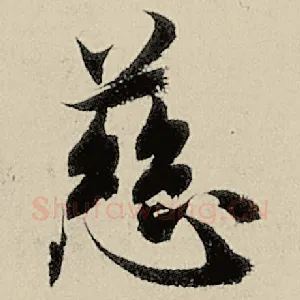 慈
Shufawang.cn